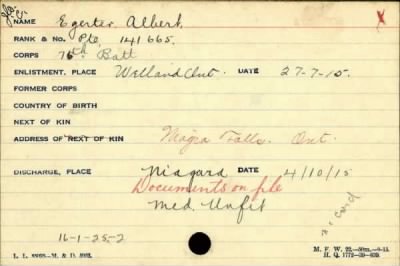 NAME Egerter Albert. X
RANK & No. Pte 141665.
CORPS 76th Batt
ENLISTMENT, PLACE Welland Ont. DATE 27-7-15.
FORMER CORPS
COUNTRY OF BIRTH
NEXT OF KIN
ADDRESS OF NEXT OF KIN Niagra Falls. Ont.
DISCHARGE, PLACE Niagara DATE 4/10/15
Documents on file
Med. Unfit
16-1-25-2
M. F. W. 22.—50m.—9-15.
H. Q. 1772-39-839.